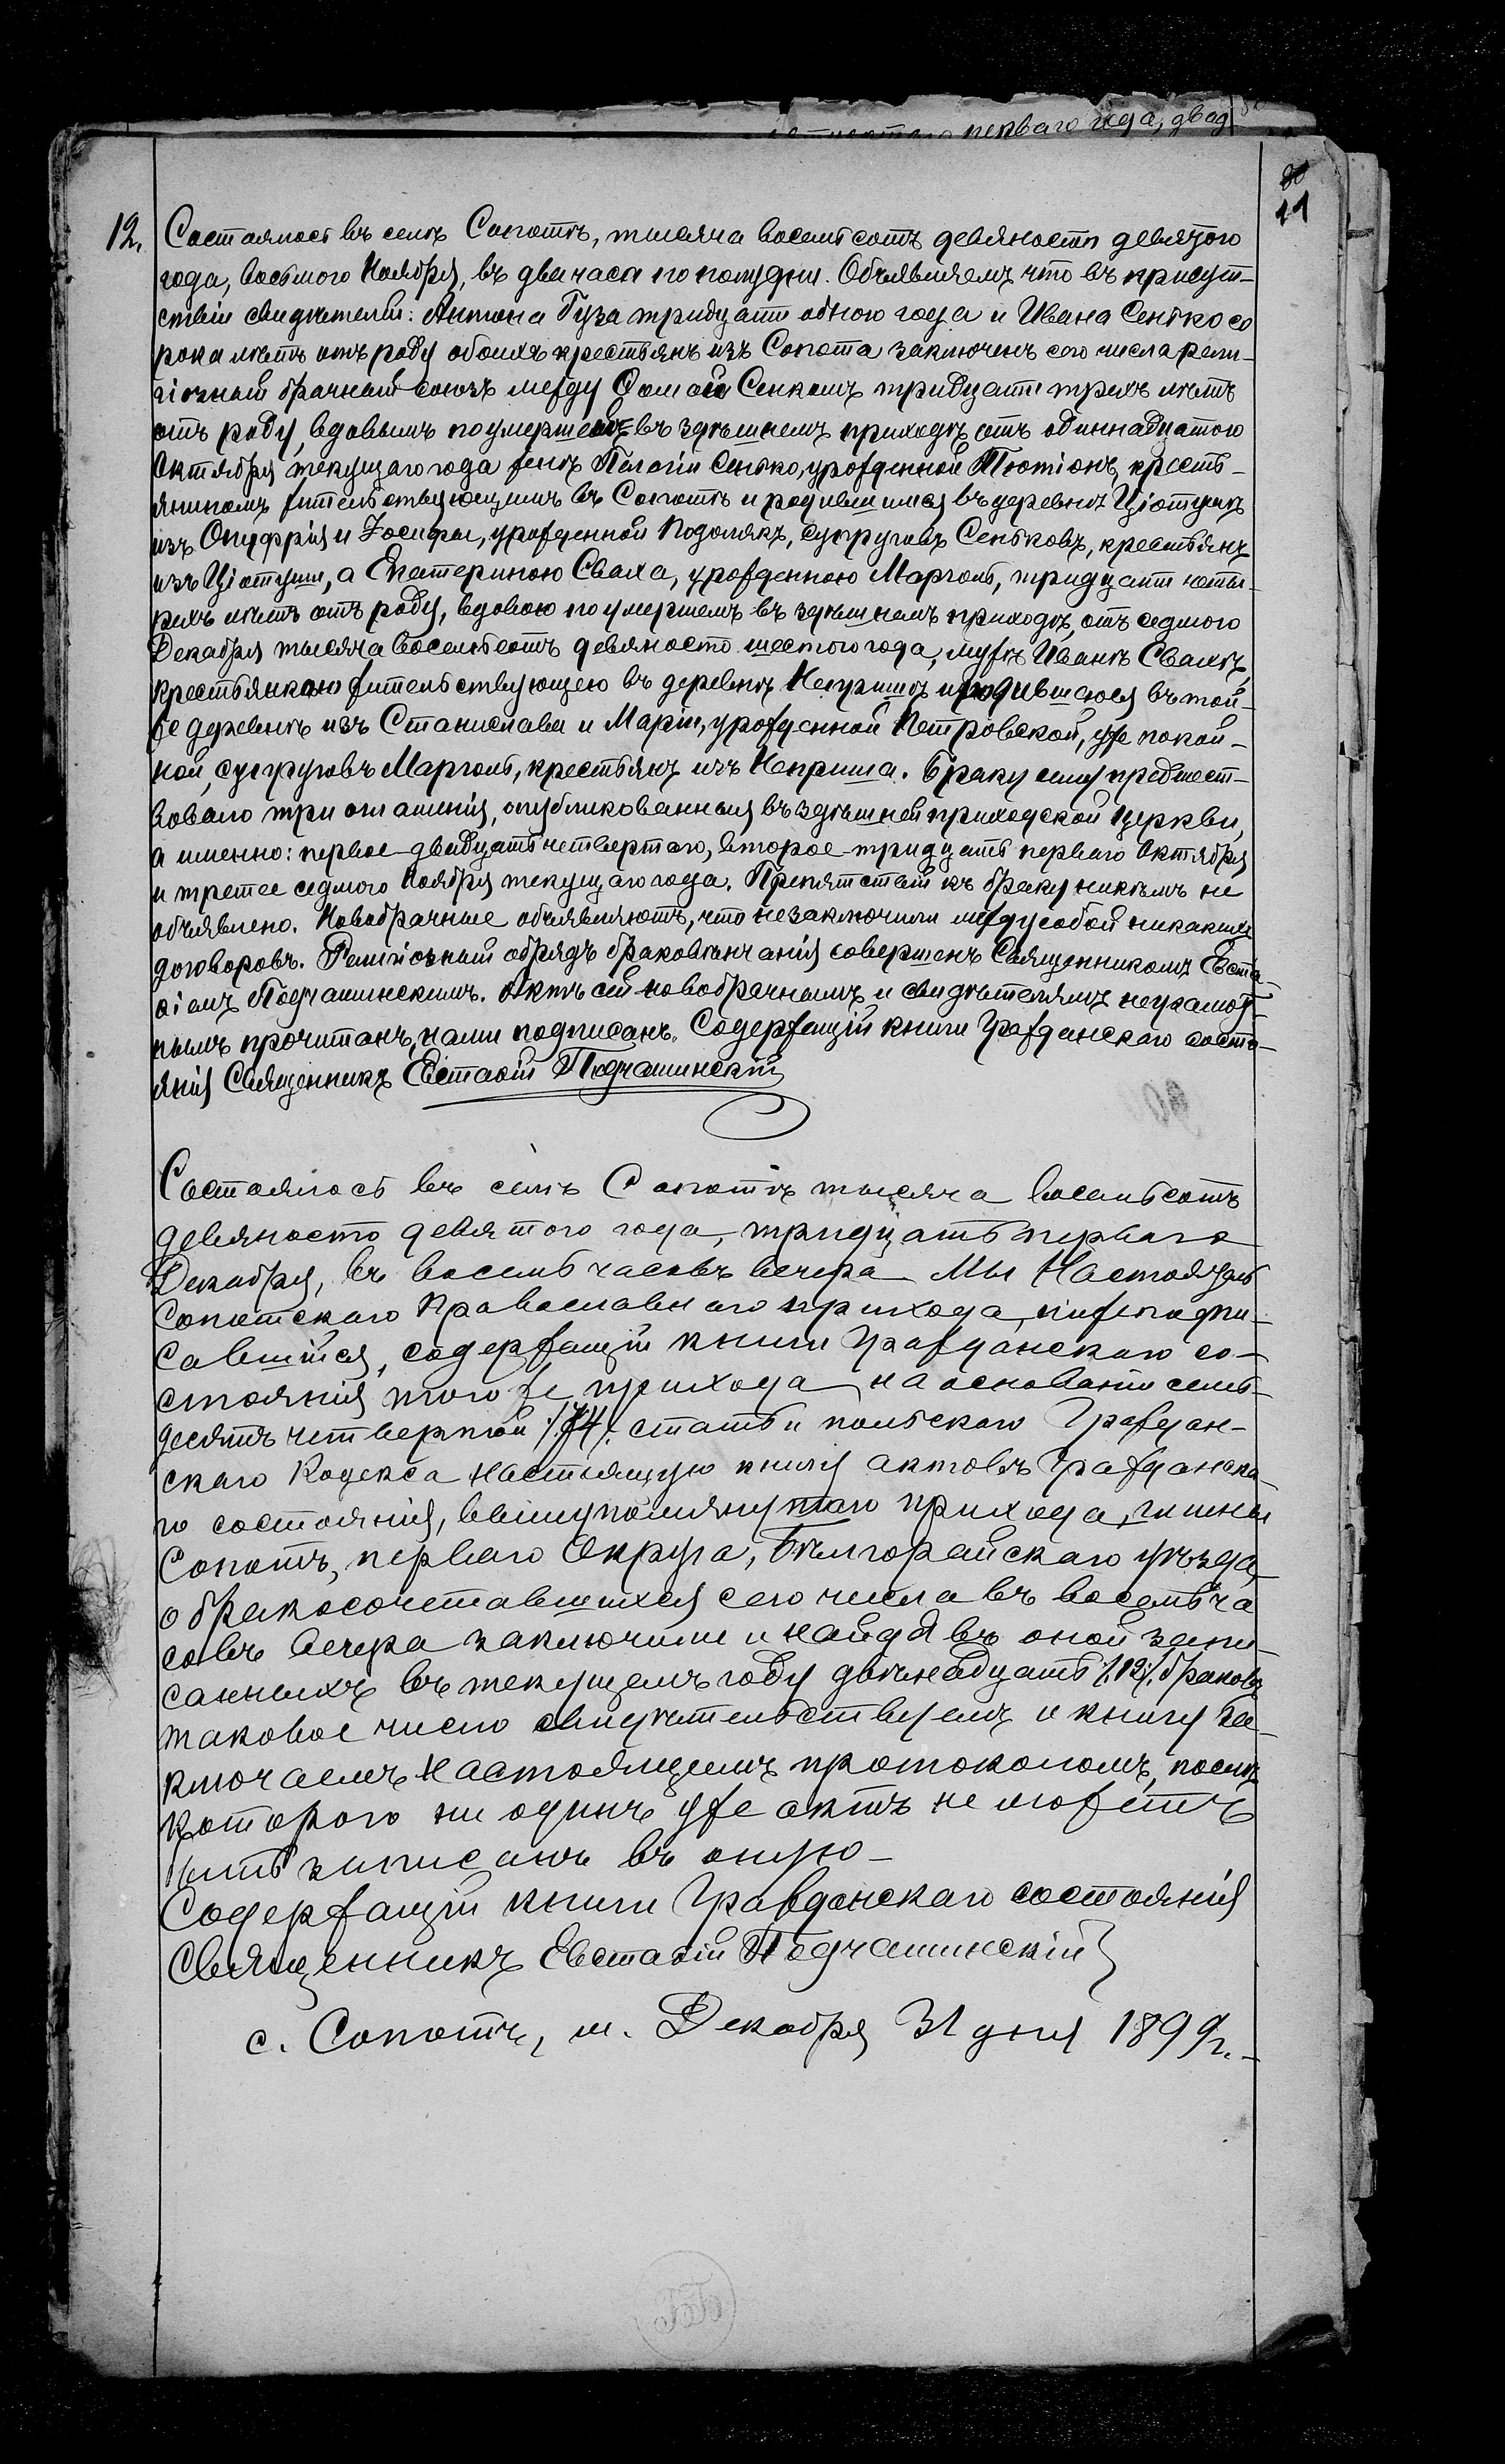 перваго года, двад
80
11
12. Состоялось въ селѣ Сопотѣ, тысяча восемьсотъ девяносто девятого
года, восьмого Ноября, въ два часа по полудни. Объявляемъ что въ присут-
ствіи свидѣтелей: Антона Гуза тридцати одного года и Ивана Сенько со
рока лѣтъ отъ роду обоихъ крестьянъ изъ Сопота заключенъ сего числа рели-
гіозный брачный союзъ между Ѳомой Сенкомъ тридцати трехъ лѣтъ
отъ роду, вдовымъ по умершей въ здѣшнемъ приходѣ отъ одиннадцатого
Октября текущаго года женѣ Пелагіи Сенько, урожденной Тютіонъ, кресть-
яниномъ жительствующимъ въ Сопотѣ и родившимся въ деревнѣ Ціотушѣ
изъ Онуфрія и Іосифы, урожденной Подолякъ, супруговъ Сеньковъ, крестьянъ
изъ Ціотуши, а Екатериною Сваха, урожденною Марголь, тридцати четы-
рехъ лѣтъ отъ роду, вдовою по умершемъ въ здѣшнемъ приходѣ, отъ седмого
Декабря тысяча восемьсотъ девяносто шестого года, мужѣ Иванѣ Свахѣ,
крестьянкою жительствующею въ деревнѣ Непришѣ и родившаюся въ той-
же деревнѣ изъ Станислава и Маріи, урожденной Петровской, уже покой-
ной, супруговъ Марголь, крестьянъ изъ Неприша. Браку сему предшест-
вовало три оглашенія, опубликованныя въ здѣшней приходской церкви,
а именно: первое двадцать четвертаго, второе тридцать перваго Октября
и третее седмого Ноября текущаго года. Препятствій къ браку никѣмъ не
объявлено. Новобрачные объявляютъ, что не заключили между собой никакихъ
договоровъ. Религіозный обрядъ браковѣнчанія совершенъ Священникомъ Евста-
ѳіемъ Подчашинскимъ. Актъ сей новобрачнымъ и свидѣтелямъ неграмот-
нымъ прочитанъ, нами подписанъ. Содержащій книги Гражданскаго состо-
янія Священникъ Евстаѳій Подчашинскій
Состоялось въ селѣ Сопотѣ тысяча восемьсотъ
девяносто девятого года, тридцать перваго
Декабря, въ восемь часовъ вечера Мы Настоятель
Сопотскаго Православнаго прихода, нижеподпи-
савшійся, содержащій книги Гражданскаго со-
стоянія того же прихода на основаніи семь-
десятъ четвертой /:74/: статьи польскаго Граждан-
скаго Кодекса настоящую книгу актовъ Гражданска-
го состоянія, вышеупомянутаго прихода, гмины
Сопотъ, перваго Округа, Бѣлгорайскаго уѣзда,
о бракосочетавшихся сего числа въ восемь ча
совъ вечера заключили и найдя въ оной запи-
санныхъ въ текущемъ году двѣнадцать /:12:/ браковъ
таковое число свидѣтельствуемъ и книгу за-
ключаемъ настоящемъ протоколомъ, послѣ
котораго ни одинъ уже актъ не можетъ
быть записанъ въ оную-
Содержащій книги Гражданскаго состоянія
Священникъ Евстаѳій Подчашинскій
с. Сопотъ, м. Декабря 31 дня 1899 г.-